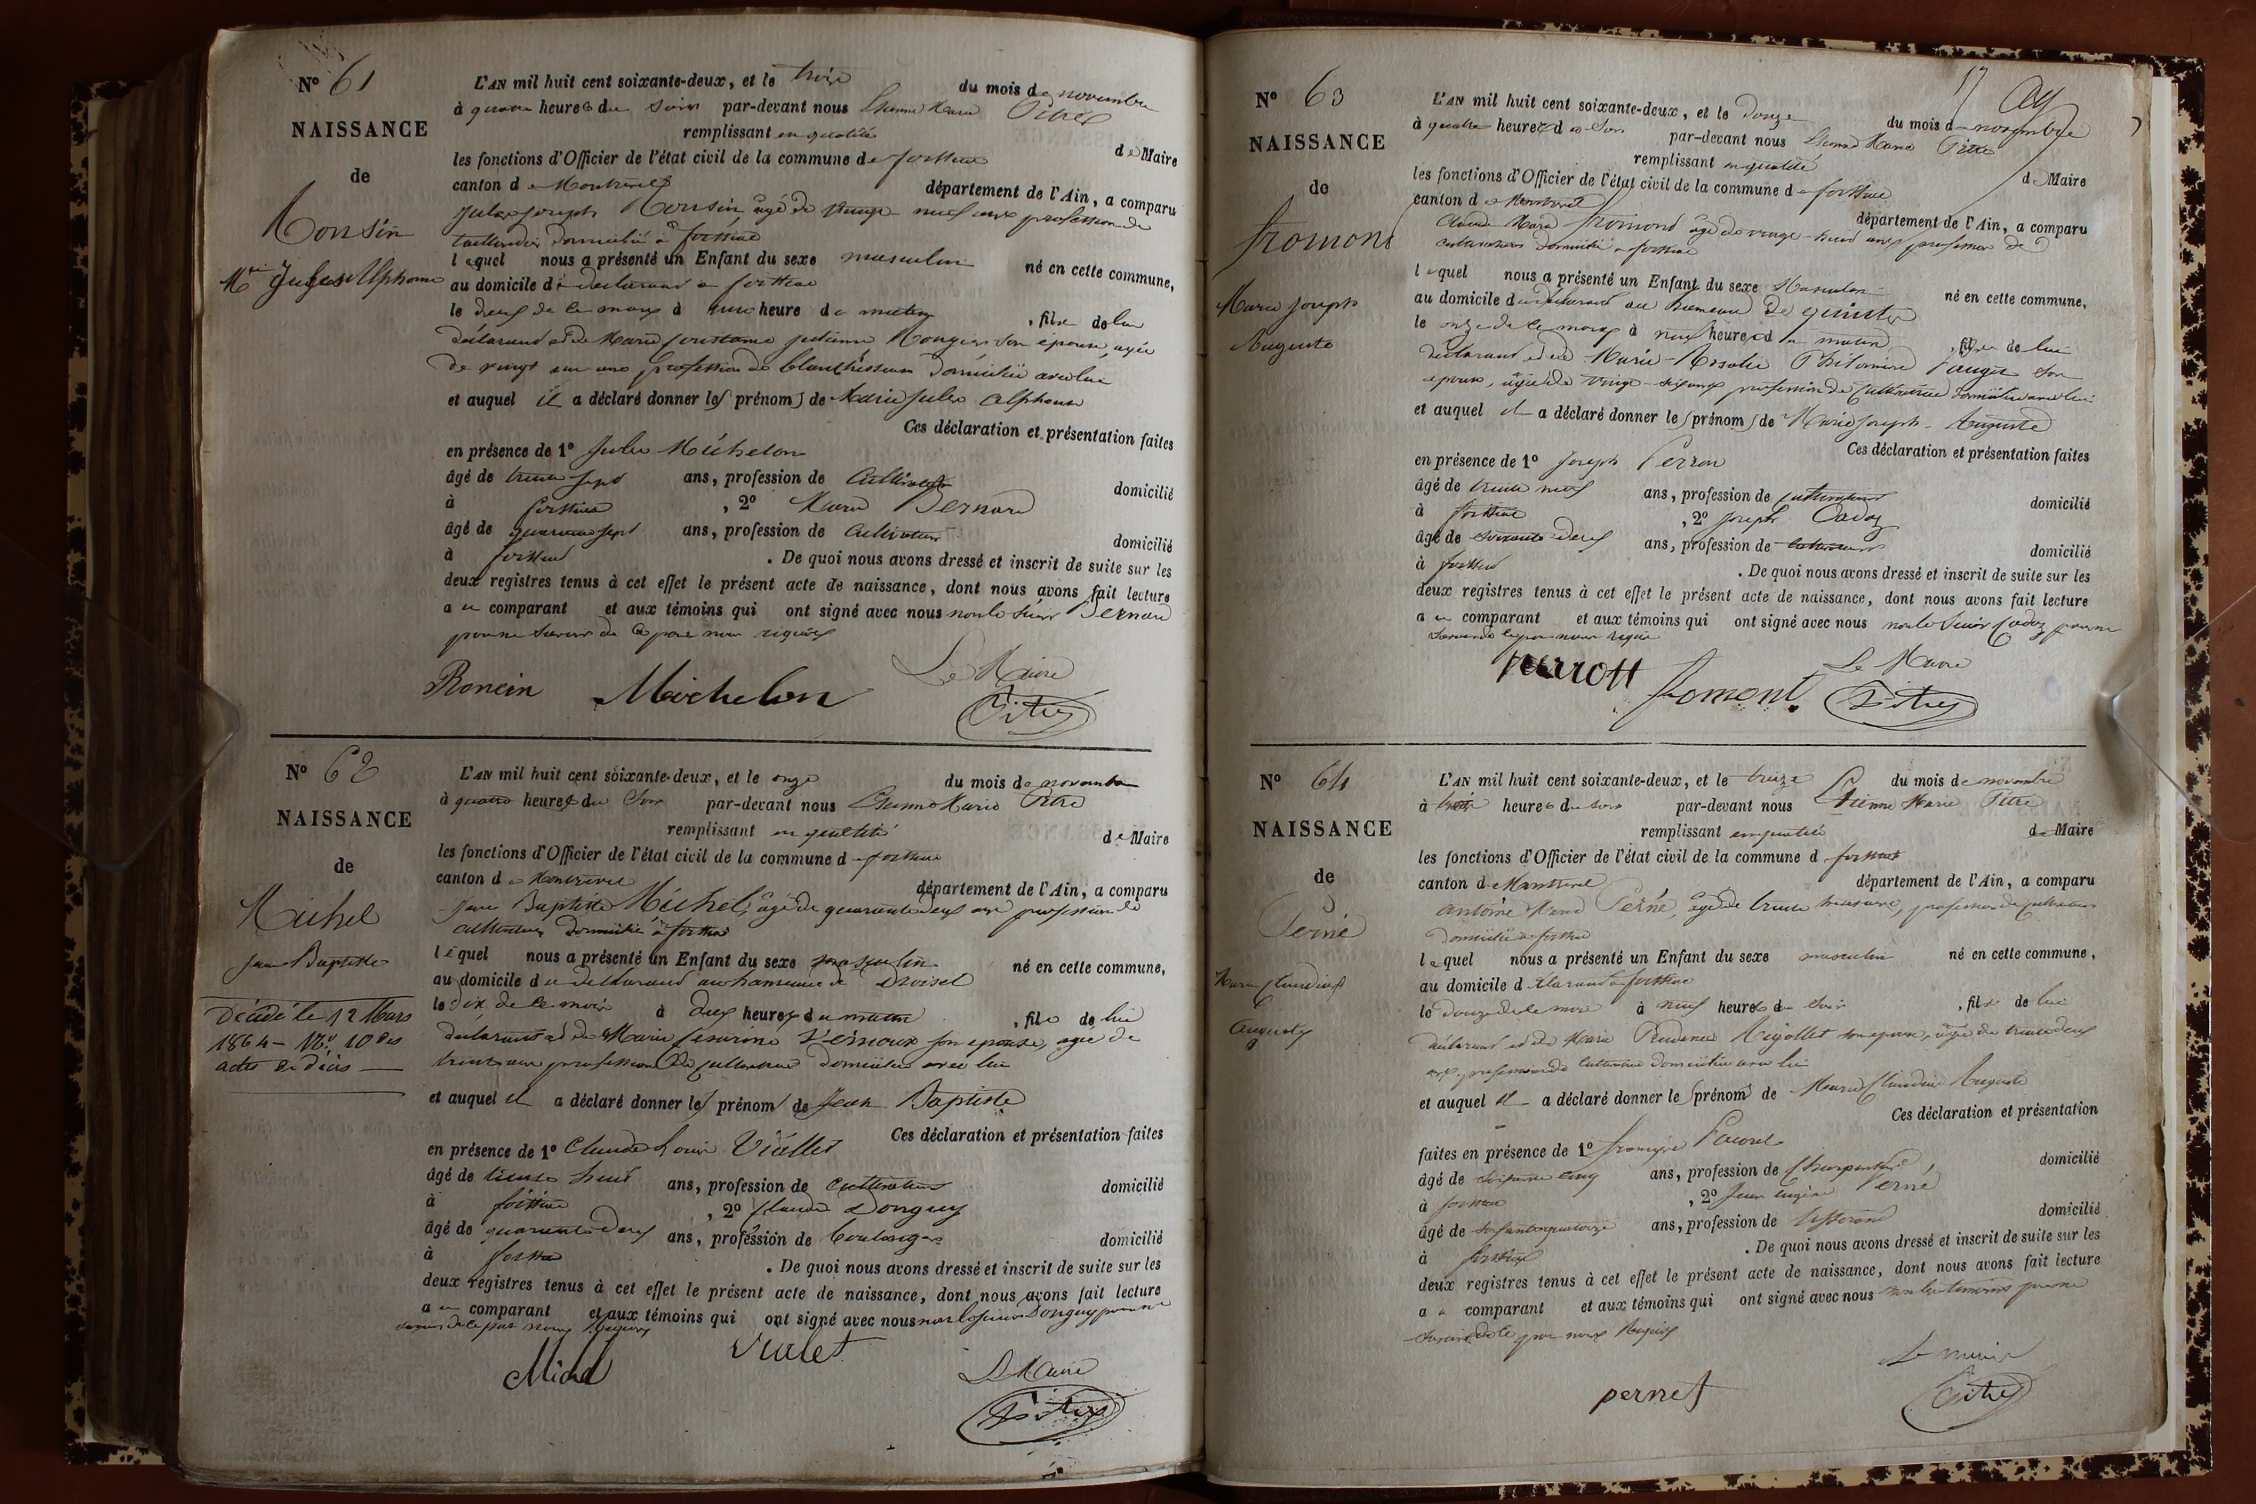 N° 61
NAISSANCE
de
Monsin
Mie Jules Alphonse
L'AN mil huit cent soixante-deux, et le trois du mois de novembre
à quatre heures du soir par-devant nous Etienne Marie Pitre
remplissant en qualité de Maire
les fonctions d'Officier de l'état civil de la commune de foissiat
canton de Montrevel département de l'Ain, a comparu
Jules Joseph âgé de vingt neuf ans profession de
taillandier domicilié à foissiat
lequel nous a présenté un Enfant du sexe masculin né en cette commune,
au domicile du déclarant à foissiat
le deux de ce mois à heure du matin , fils de lui
déclarant et de Marie Constance julienne son épouse, agée
de vingt un ans profession de blanchisseuse domiciliée avec lui
et auquel il a déclaré donner les prénoms de Marie Jules Alphonse
Ces déclaration et présentation faites
en présence de 1° Jules Michelon
âgé de trente sept ans, profession de Cultivateur domicilié
à foissiat , 2° Marie Bernard
âgé de quarante sept ans, profession de Cultivateur domicilié
à foissiat . De quoi nous avons dressé et inscrit de suite sur les
deux registres tenus à cet effet le présent acte de naissance, dont nous avons fait lecture
au comparant et aux témoins qui ont signé avec nous non le sieur Bernard
pour ne savoir de ce par nous requis
Michelon Le Maire
Pitre
N° 62
NAISSANCE
de
Michel
Jean Baptiste
Décédé le 12 Mars
1864 - N° 10 des
actes de décès
L'AN mil huit cent soixante-deux, et le onze du mois de novembre
à quatre heures du soir par-devant nous Etienne Marie Pitre
remplissant en qualité de Maire
les fonctions d'Officier de l'état civil de la commune de foissiat
canton de Montrevel département de l'Ain, a comparu
Jean Baptiste Michel, âgé de quarante deux ans profession de
cultivateur domicilié à foissiat
lequel nous a présenté un Enfant du sexe masculin né en cette commune,
au domicile du déclarant au hameau de
le dix de ce mois à deux heures du matin , fils de lui
déclarant et de Marie son épouse, agée de
trente ans profession de cultivatrice domiciliée avec lui
et auquel il a déclaré donner les prénoms de Jean Baptiste
Ces déclaration et présentation faites
en présence de 1° Claude Louis Viallet
âgé de trente huit ans, profession de Cultivateur domicilié
à foissiat , 2° Claude Donguy
âgé de quarante deux ans, profession de boulanger domicilié
à foissiat . De quoi nous avons dressé et inscrit de suite sur les
deux registres tenus à cet effet le présent acte de naissance, dont nous avons fait lecture
au comparant et aux témoins qui ont signé avec nous non le sieur Donguy pour ne
savoir de ce par nous requis
Michel Vialet Le Maire
Pitre
17
N° 63
NAISSANCE
de
fromont
Marie Joseph
Auguste
L'AN mil huit cent soixante-deux, et le Douze du mois de novembre
à quatre heures du soir par-devant nous Etienne Marie Pitre
remplissant en qualité de Maire
les fonctions d'Officier de l'état civil de la commune de foissiat
canton de Montrevel département de l'Ain, a comparu
Claude Marie fromont âgé de vingt huit ans profession de
cultivateur domicilié à foissiat
lequel nous a présenté un Enfant du sexe Masculin né en cette commune,
au domicile du déclarant au hameau de
le onze de ce mois à neuf heures du matin , fils de lui
déclarant et de Marie Rosalie Philomène son
épouse, agée de vingt six ans profession de Cultivatrice domiciliée avec lui
et auquel il a déclaré donner les prénoms de Marie Joseph Auguste
Ces déclaration et présentation faites
en présence de 1° Joseph Perron
âgé de trente neuf ans, profession de cultivateur domicilié
à foissiat , 2° Joseph Cadoz
âgé de soixante deux ans, profession de cultivateur domicilié
à foissiat . De quoi nous avons dressé et inscrit de suite sur les
deux registres tenus à cet effet le présent acte de naissance, dont nous avons fait lecture
au comparant et aux témoins qui ont signé avec nous non le sieur Cadoz pour ne
savoir de ce par nous requis
fromont Le Maire
Pitre
N° 64
NAISSANCE
de
Perné
Marie Claudius
Auguste
L'AN mil huit cent soixante-deux, et le treize du mois de novembre
à heures du soir par-devant nous Etienne Marie Pitre
remplissant en qualité de Maire
les fonctions d'Officier de l'état civil de la commune de foissiat
canton de Montrevel département de l'Ain, a comparu
Antoine Marie Perné, âgé de trente ans, profession de Cultivateur
domicilié à foissiat
lequel nous a présenté un Enfant du sexe masculin né en cette commune,
au domicile du déclarant à foissiat
le douze de ce mois à neuf heures du soir , fils de lui
déclarant et de Marie Prudence son épouse, agée de trente deux
ans, profession de Cultivatrice domiciliée avec lui
et auquel il a déclaré donner les prénoms de Marie Claudius Auguste
Ces déclaration et présentation
faites en présence de 1° françois
âgé de soixante cinq ans, profession de Charpentier, domicilié
à foissiat , 2° Jean Eugène Perné
âgé de ans, profession de Tisserand domicilié
à foissiat . De quoi nous avons dressé et inscrit de suite sur les
deux registres tenus à cet effet le présent acte de naissance, dont nous avons fait lecture
au comparant et aux témoins qui ont signé avec nous non les témoins pour ne
savoir de ce par nous requis
pernet Le maire
Pitre